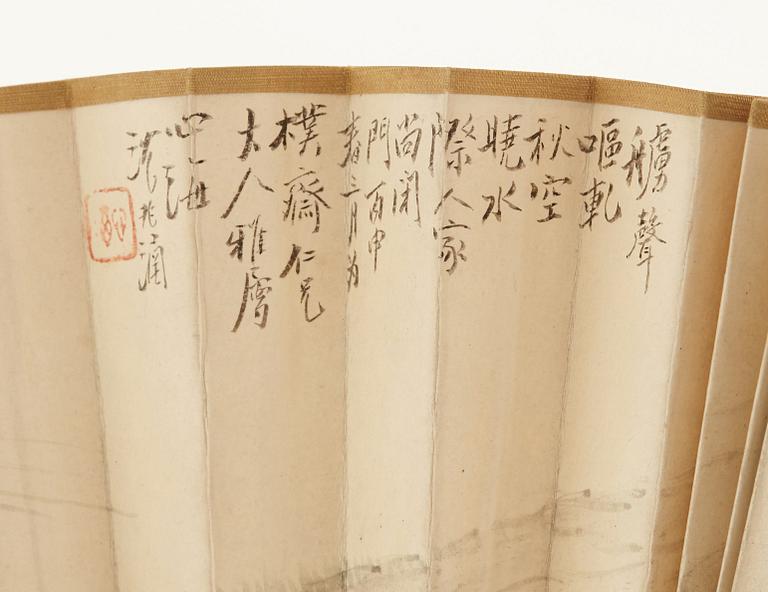 艣聲
嘔軋
秋空
曉水
際人家
尚閉
門丙申
春三月为
樸齋仁兄
大人雅屬
心海
沈兆涵